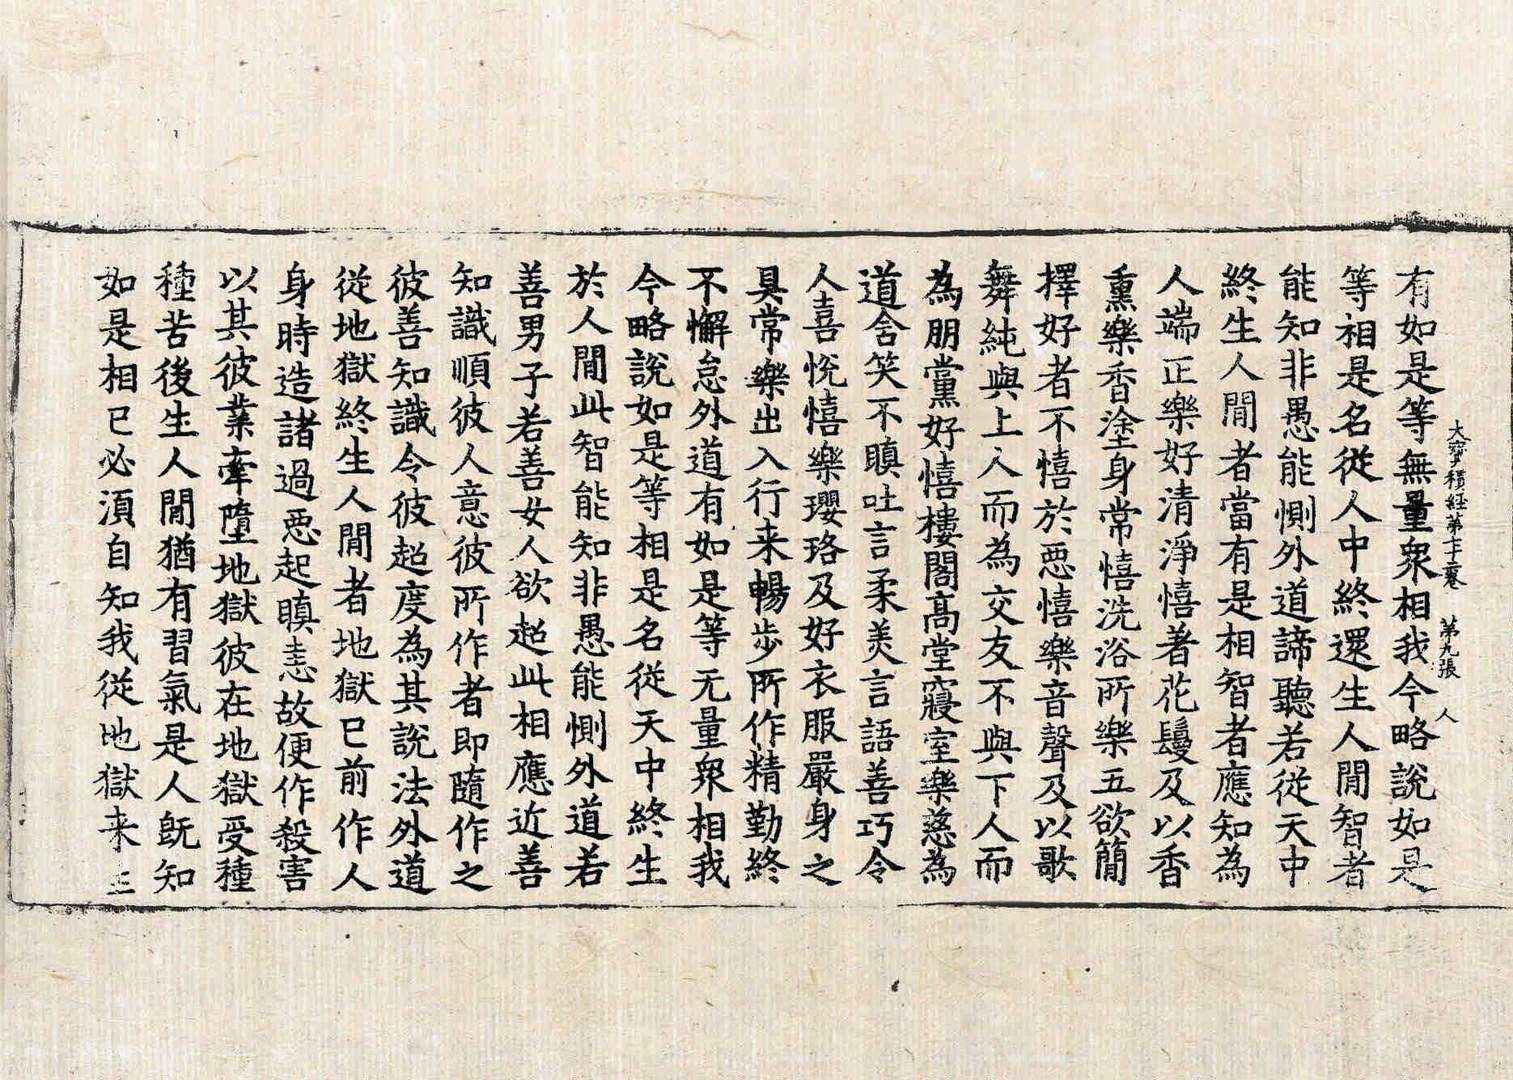 大寶積經第七十二卷　第九張　人
有如是等無量衆相我今略說如是
等相是名從人中終還生人閒智者
能知非愚能惻外道諦聽若從天中
終生人閒者當有是相智者應知為
人端正樂好清淨憘著花鬘及以香
熏樂香塗身常憘洗浴所樂五欲簡
擇好者不憘於惡憘樂音聲及以歌
舞純與上人而為交友不與下人而
為朋黨好憘樓閣高堂寢室樂慈為
道含笑不瞋吐言柔美言語善巧令
人喜悅憘樂瓔珞及好衣服嚴身之
具常樂出入行来暢步所作精勤終
不懈怠外道有如是等无量衆相我
今略說如是等相是名從天中終生
於人閒此智能知非愚能惻外道若
善男子若善女人欲超此相應近善
知識順彼人意彼所作者即隨作之
彼善知識令彼超度為其說法外道
從地獄終生人閒者地獄已前作人
身時造諸過惡起瞋恚故便作殺害
以其彼業牽墮地獄彼在地獄受種
種苦後生人閒猶有習氣是人旣知
如是相已必須自知我從地獄来